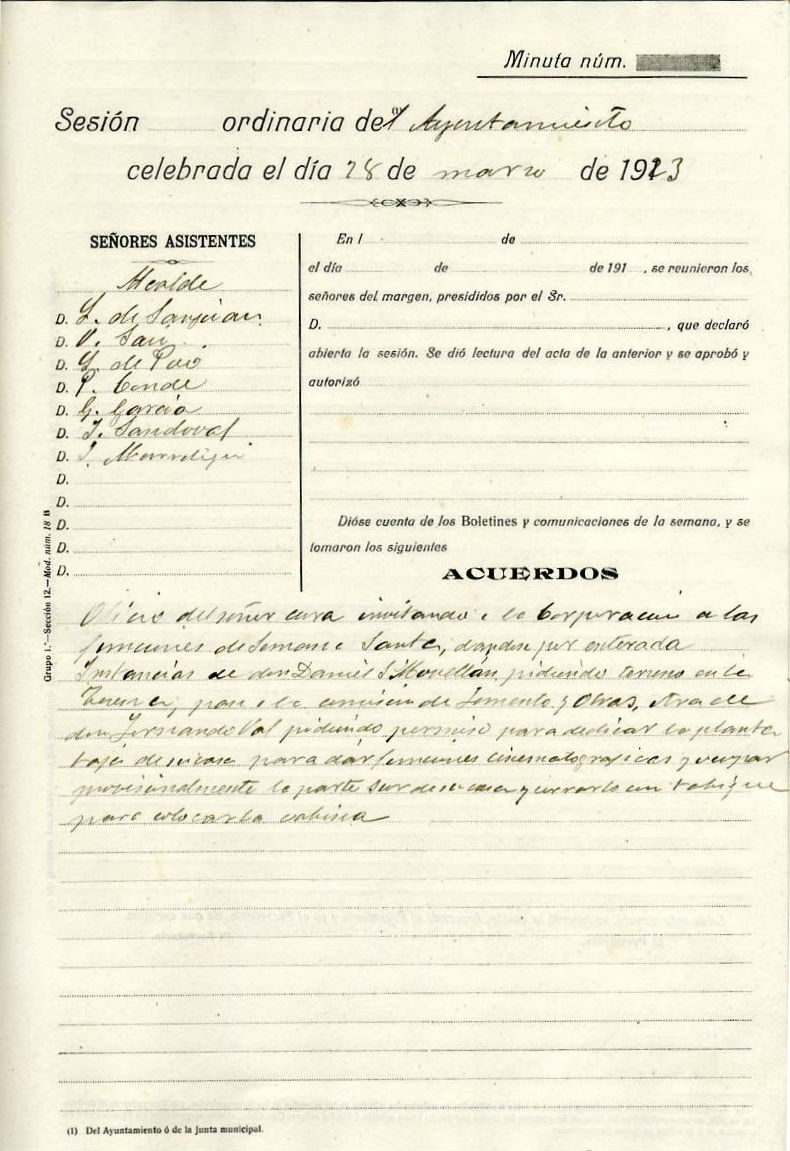 Minuta núm.
Sesión ordinaria del (1) Ayuntamiento
celebrada el día 28 de marzo de 1923
SEÑORES ASISTENTES
Alcalde
D. L. de Sanjuan
D. V. San
D. L. de Pao
D. P. Conde
D. G. García
D. J. Sandoval
D. J.
D.
D.
D.
D.
D.
En l de
el día de de 191 , se reunieron los
señores del margen, presididos por el Sr.
D. , que declaró
abierta la sesión. Se dió lectura del acta de la anterior y se aprobó y
autorizó
Dióse cuenta de los Boletines y comunicaciones de la semana, y se
tomaron los siguientes
ACUERDOS
Oficio del señor cura invitando a la Corporación a las
funciones de Semana Santa, dandose por enterada
Instancias de don Daniel S Movellán pidiendo terreno en la
pase a la comisión de Fomento y Obras, otra de
don Fernando Val pidiendo permiso para dedicar la planta
baja de su casa para dar funciones cinematograficas y ocupar
provisionalmente la parte sur de su casa y cerrarlo con tabique
para colocar la cabina
Grupo 1.º—Sección 12.—Mod. núm. 18 B
(1) Del Ayuntamiento ó de la Junta municipal.